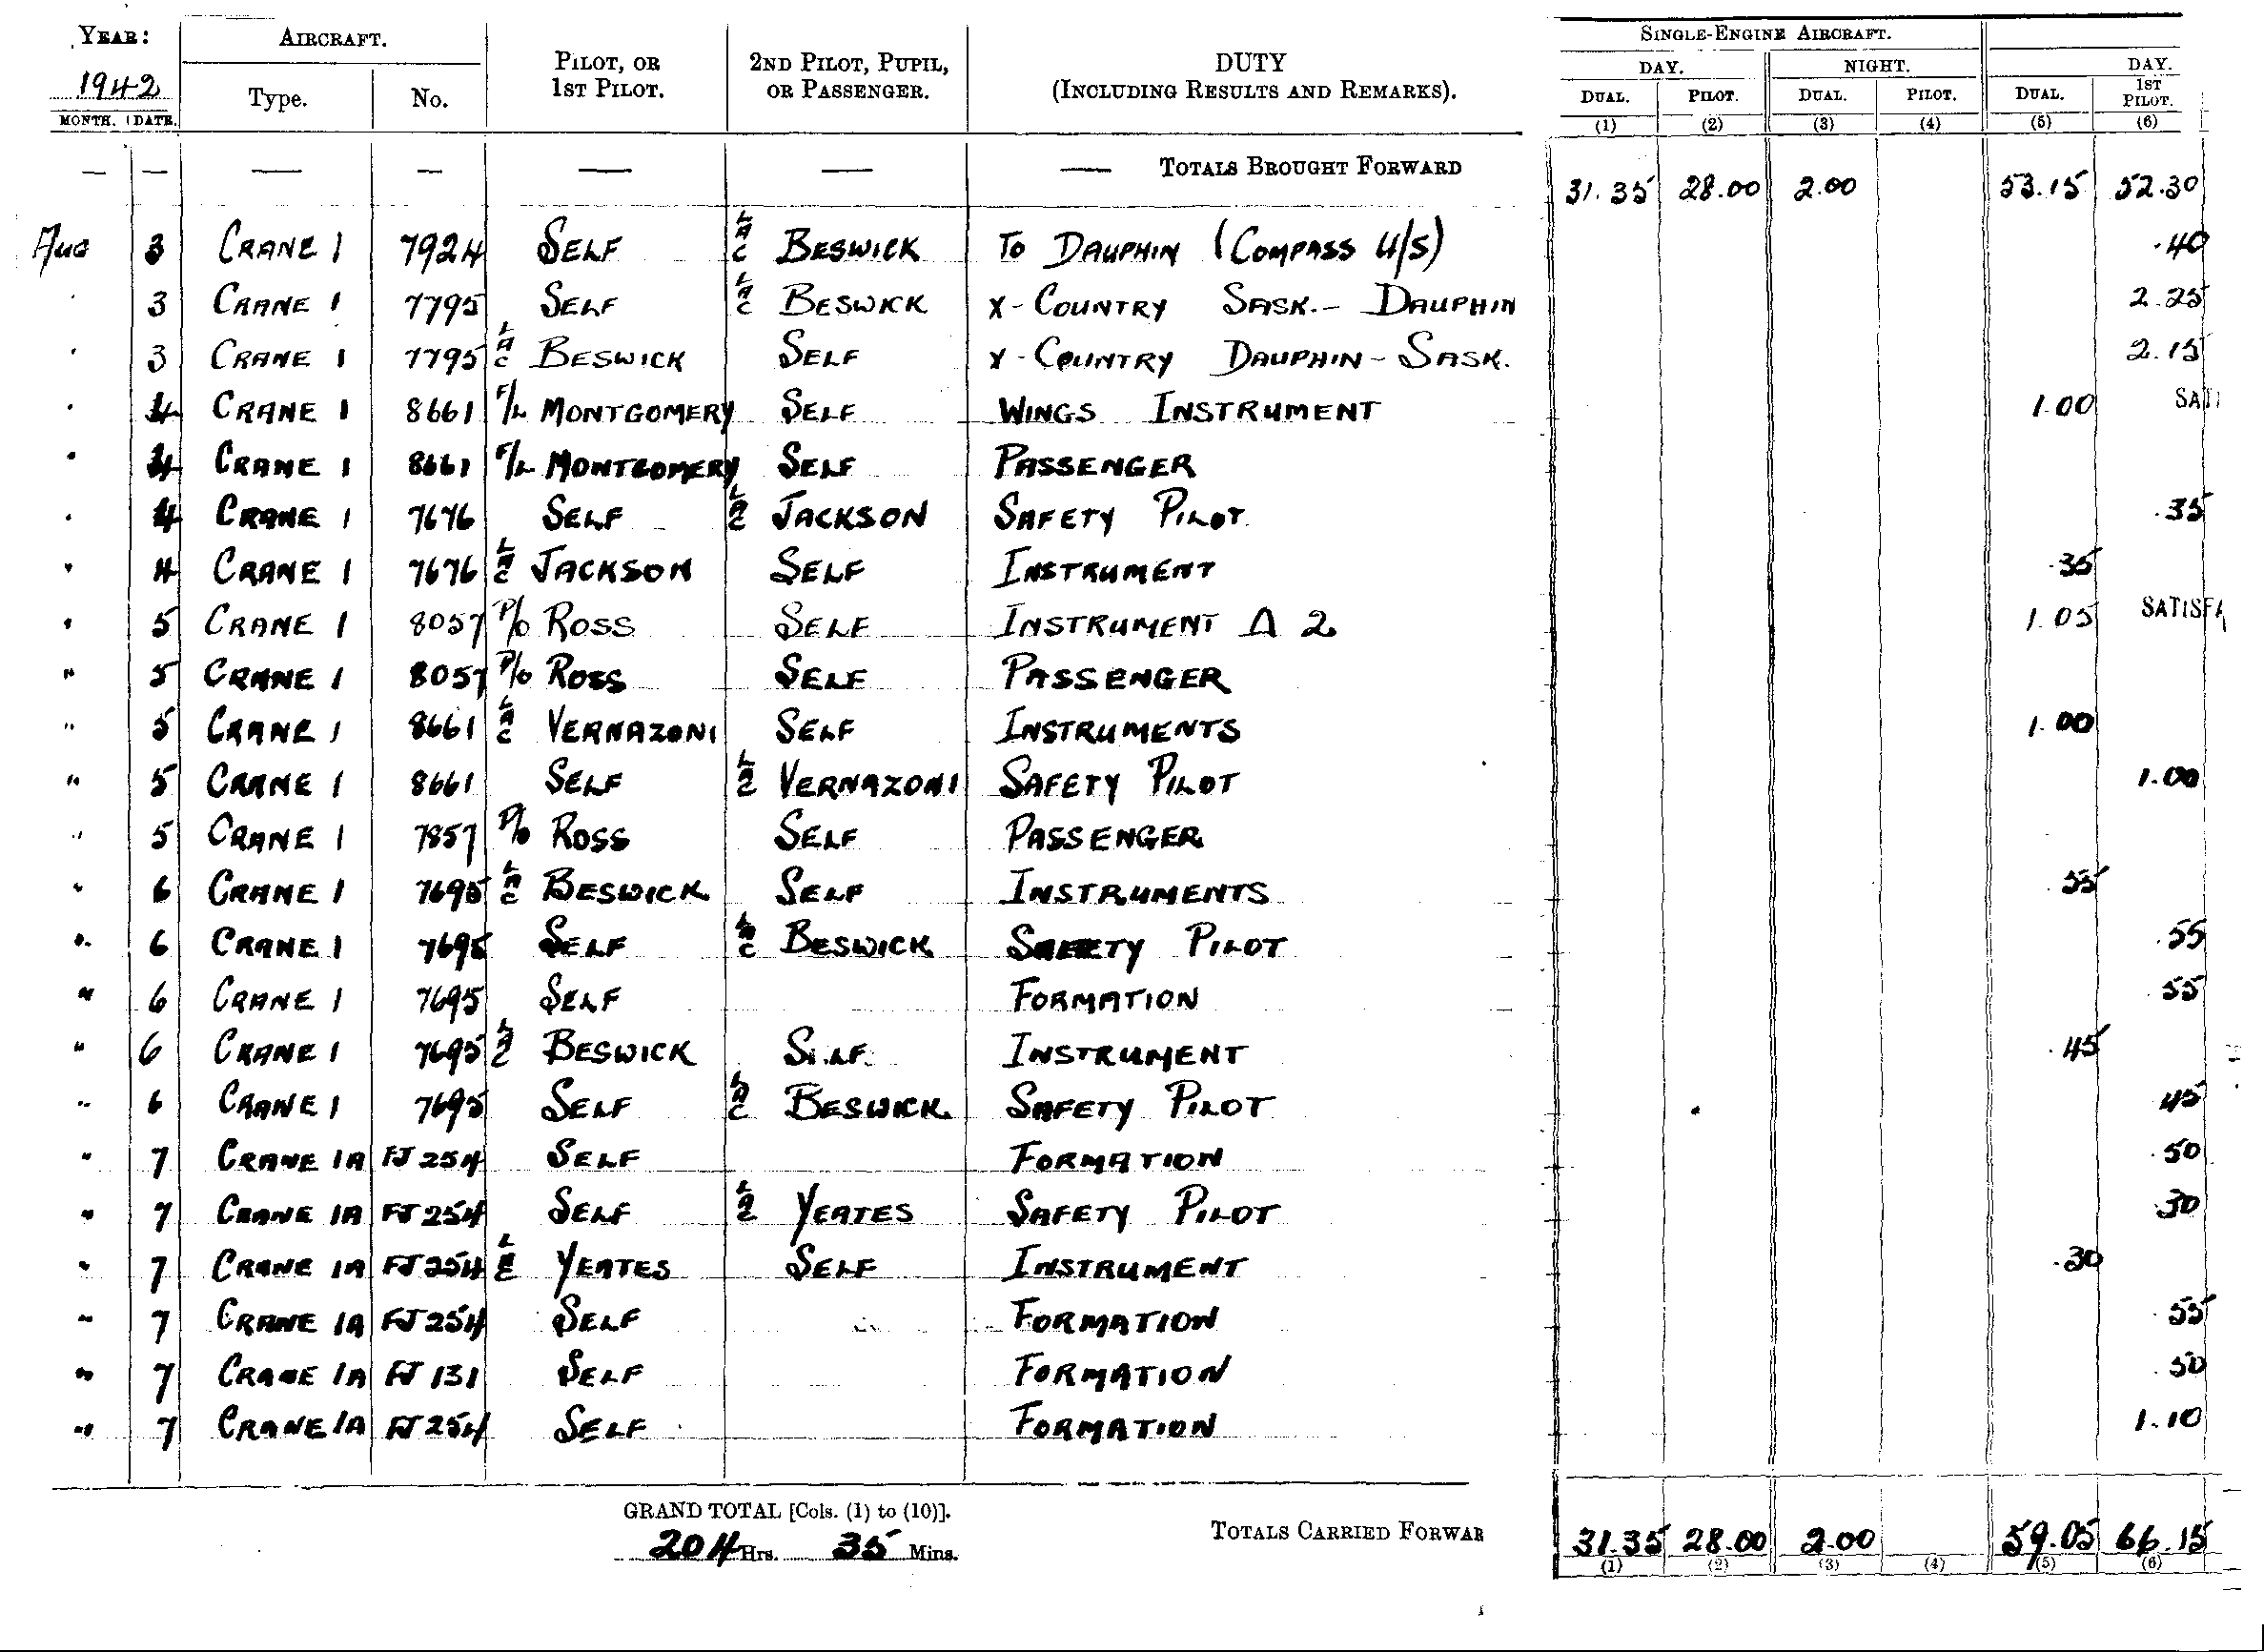 YEAR: AIRCRAFT. PILOT, OR 1ST PILOT. 2ND PILOT, PUPIL, OR PASSENGER. DUTY (INCLUDING RESULTS AND REMARKS). SINGLE-ENGINE AIRCRAFT.
1942 Type. No. DAY. NIGHT. DAY.
MONTH. DATE. DUAL. PILOT. DUAL. PILOT. DUAL. 1ST PILOT.
(1) (2) (3) (4) (5) (6)
— — — — — — — TOTALS BROUGHT FORWARD 31.35 28.00 2.00 53.15 52.30
Aug 3 CRANE 1 7924 SELF LAC BESWICK TO DAUPHIN (COMPASS U/S) .40
" 3 CRANE 1 7795 SELF LAC BESWICK X-COUNTRY SASK.- DAUPHIN 2.25
" 3 CRANE 1 7795 LAC BESWICK SELF X-COUNTRY DAUPHIN-SASK. 2.15
" 4 CRANE 1 8661 F/L MONTGOMERY SELF WINGS INSTRUMENT 1.00 SATI
" 4 CRANE 1 8661 F/L MONTGOMERY SELF PASSENGER
" 4 CRANE 1 7676 SELF LAC JACKSON SAFETY PILOT .35
" 4 CRANE 1 7676 LAC JACKSON SELF INSTRUMENT .35
" 5 CRANE 1 8057 P/O ROSS SELF INSTRUMENT Δ 2 1.05 SATISFA
" 5 CRANE 1 8057 P/O ROSS SELF PASSENGER
" 5 CRANE 1 8661 LAC VERNAZONI SELF INSTRUMENTS 1.00
" 5 CRANE 1 8661 SELF LAC VERNAZONI SAFETY PILOT 1.00
" 5 CRANE 1 7857 P/O ROSS SELF PASSENGER
" 6 CRANE 1 7695 LAC BESWICK SELF INSTRUMENTS .55
" 6 CRANE 1 7695 SELF LAC BESWICK SAFETY PILOT .55
" 6 CRANE 1 7695 SELF FORMATION .55
" 6 CRANE 1 7695 LAC BESWICK SELF INSTRUMENT .45
" 6 CRANE 1 7695 SELF LAC BESWICK SAFETY PILOT .45
" 7 CRANE 1A FJ 254 SELF FORMATION .50
" 7 CRANE 1A FJ 254 SELF LAC YEATES SAFETY PILOT .30
" 7 CRANE 1A FJ 254 LAC YEATES SELF INSTRUMENT .30
" 7 CRANE 1A FJ 254 SELF FORMATION .55
" 7 CRANE 1A FJ 131 SELF FORMATION .50
" 7 CRANE 1A FJ 254 SELF FORMATION 1.10
GRAND TOTAL [Cols. (1) to (10)].
204 Hrs. 35 Mins. TOTALS CARRIED FORWAR 31.35 28.00 2.00 59.05 66.15
(1) (2) (3) (4) (5) (6)